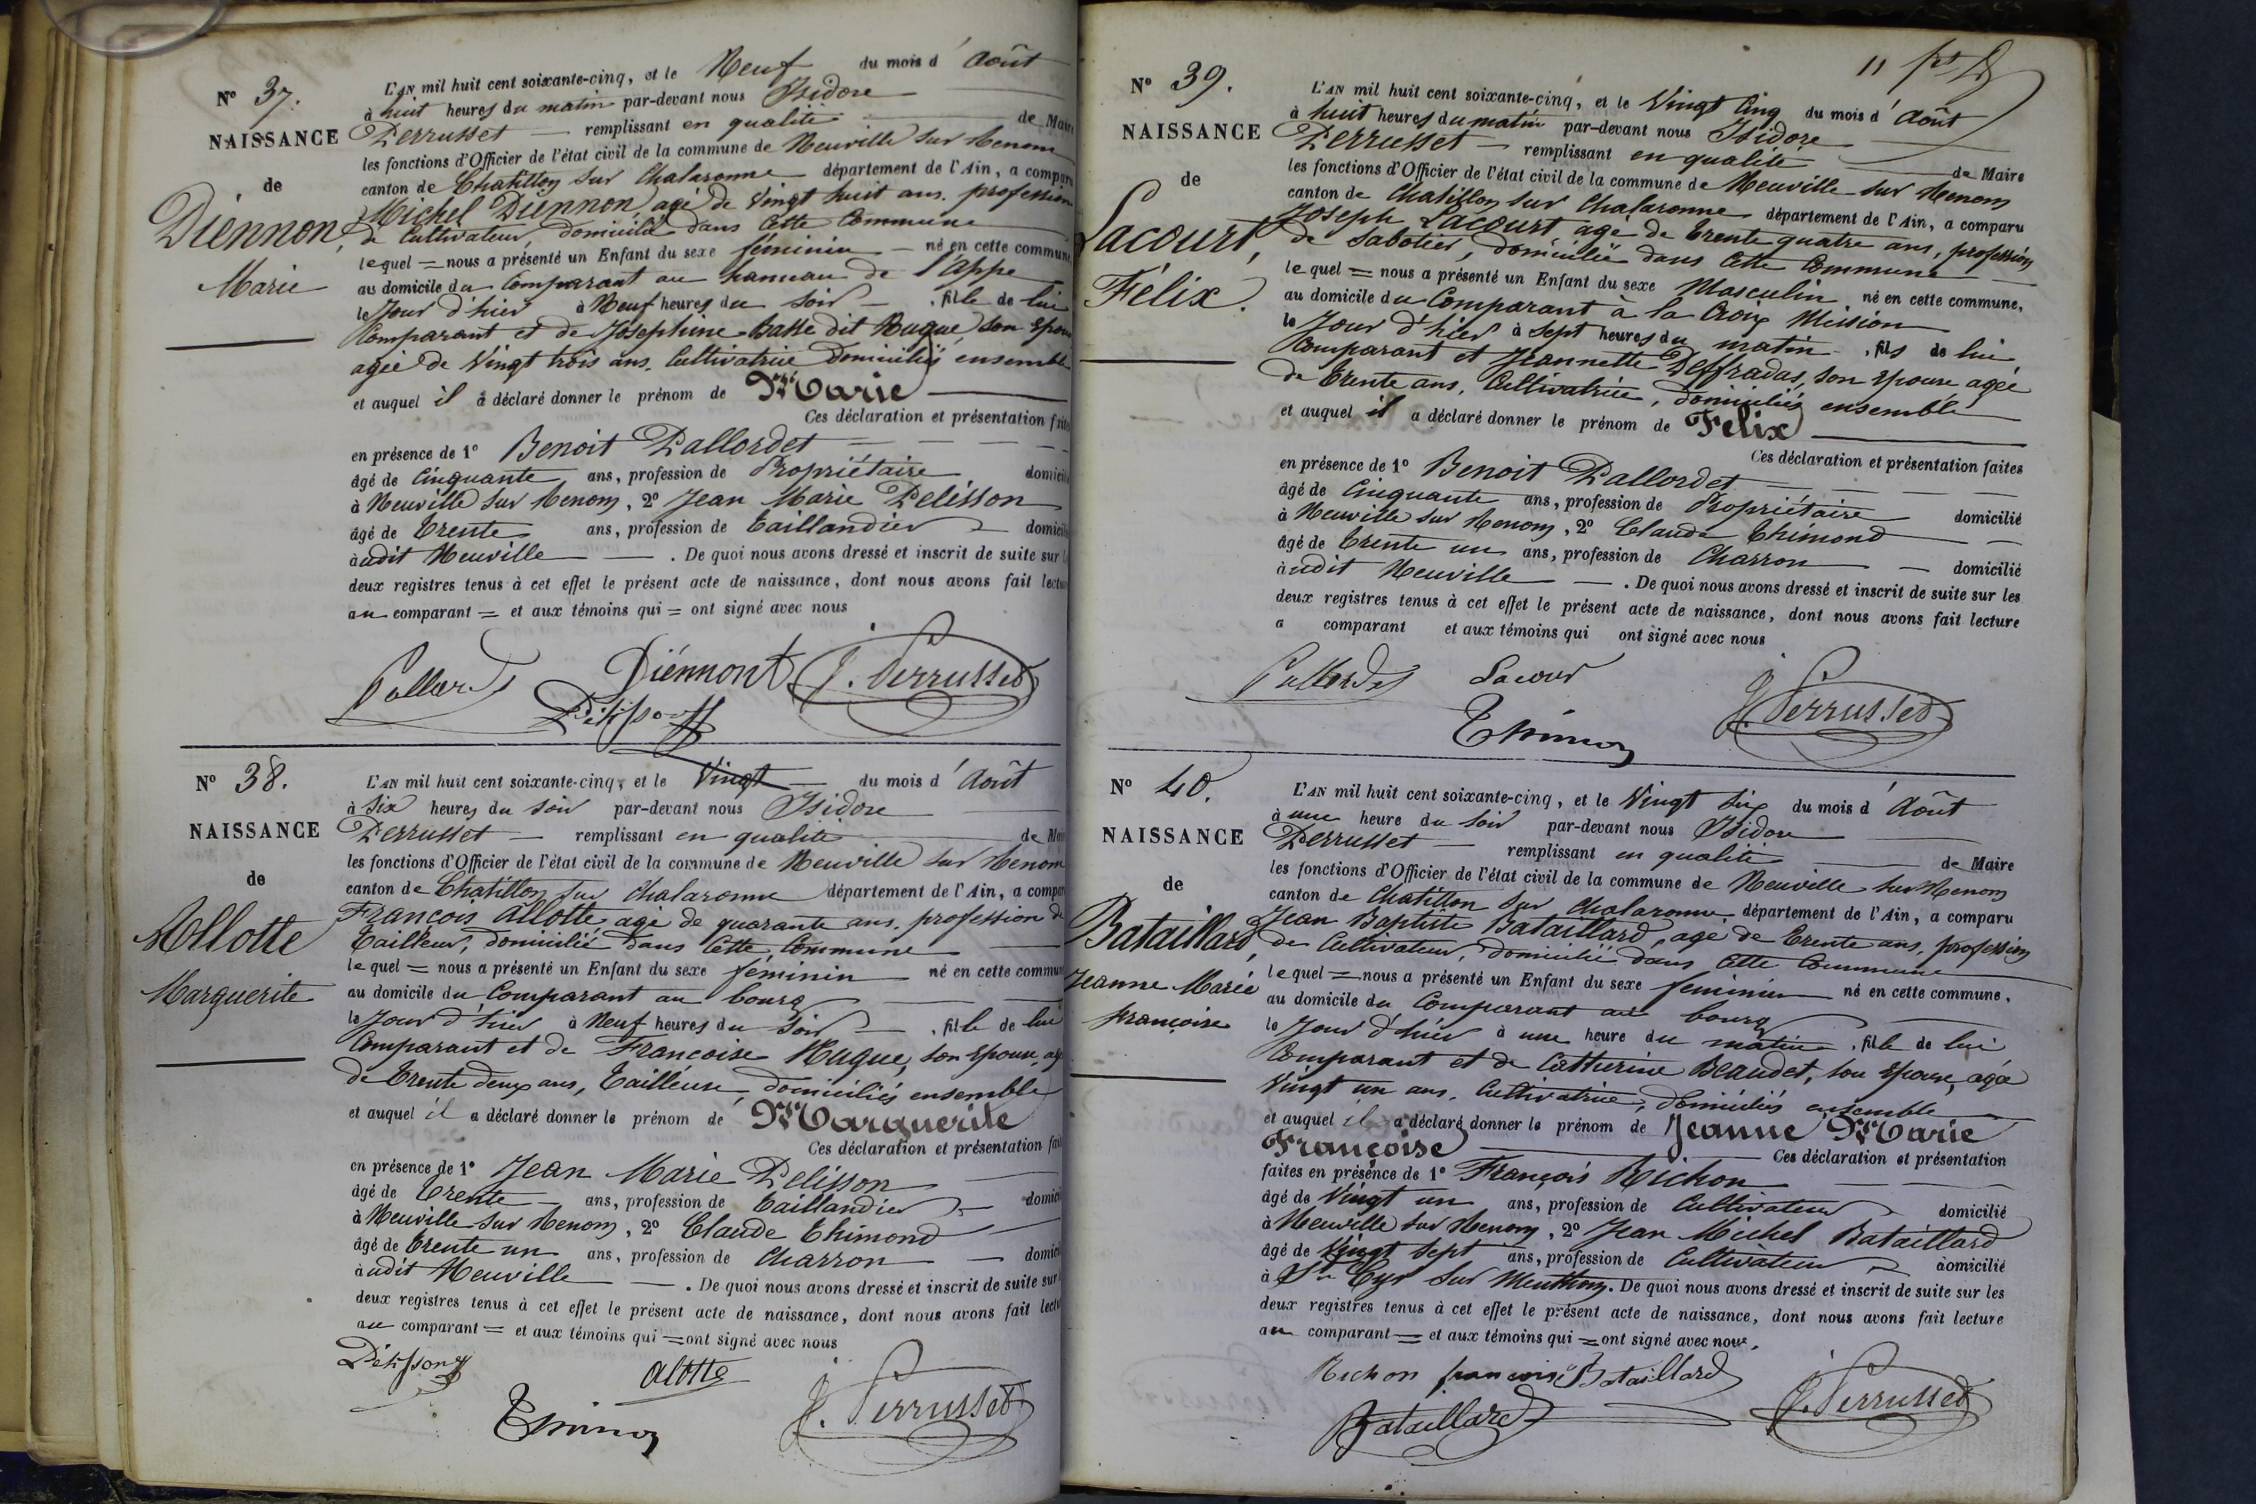 N° 37.
NAISSANCE
de
Diénnon,
Marie
L'AN mil huit cent soixante-cinq, et le Neuf du mois d'Août
à huit heures du matin par-devant nous Isidore
Perrusset — remplissant en qualité de Maire
les fonctions d'Officier de l'état civil de la commune de Neuville sur Renom
canton de Chatillon sur Chalaronne département de l'Ain, a comparu
Michel Diénnon, agé de Vingt huit ans, profession
de Cultivateur, domicilié dans cette Commune
lequel = nous a présenté un Enfant du sexe féminin — né en cette commune,
au domicile du Comparant au hameau de l'appe
le Jour d'hier à Neuf heures du soir — , fille de lui
Comparant et de Joséphine Basse dit Hugue, son Epouse
agée de Vingt trois ans, Cultivatrice Domiciliés ensemble
et auquel il a déclaré donner le prénom de Marie
Ces déclaration et présentation faites
en présence de 1° Benoit Pallordet
âgé de Cinquante ans, profession de Propriétaire domicilié
à Neuville sur Renom, 2° Jean Marie Pelisson
âgé de Trente ans, profession de Taillandier domicilié
audit Neuville — . De quoi nous avons dressé et inscrit de suite sur les
deux registres tenus à cet effet le présent acte de naissance, dont nous avons fait lecture
au comparant = et aux témoins qui = ont signé avec nous
Pallordet Diénnont J. Perrusset
Pélisson
N° 38.
NAISSANCE
de
Allotte
Marguerite
L'AN mil huit cent soixante-cinq, et le Vingt — du mois d'Août
à Six heures du soir par-devant nous Isidore
Perrusset — remplissant en qualité de Maire
les fonctions d'Officier de l'état civil de la commune de Neuville sur Renom
canton de Chatillon sur Chalaronne département de l'Ain, a comparu
François Allotte, agé de quarante ans, profession de
Tailleur, domicilié dans cette Commune
lequel = nous a présenté un Enfant du sexe féminin né en cette commune
au domicile du Comparant au bourg
le Jour d'hier à Neuf heures du soir — , fille de lui
Comparant et de Francoise Hugue, son Epouse, agée
de Trente deux ans, Tailleuse, domiciliés ensemble
et auquel il a déclaré donner le prénom de Marguerite
Ces déclaration et présentation faites
en présence de 1° Jean Marie Pelisson
âgé de Trente — ans, profession de Taillandier domicilié
à Neuville sur Renom, 2° Claude Thimond
âgé de Trente un ans, profession de Charron — domicilié
audit Neuville — . De quoi nous avons dressé et inscrit de suite sur les
deux registres tenus à cet effet le présent acte de naissance, dont nous avons fait lecture
au comparant = et aux témoins qui = ont signé avec nous
Pélisson alotte J. Perrusset
Thimon
11
N° 39.
NAISSANCE
de
Lacourt,
Félix.
L'AN mil huit cent soixante-cinq, et le Vingt Cinq du mois d'Août
à huit heures du matin par-devant nous Isidore
Perrusset — remplissant en qualité de Maire
les fonctions d'Officier de l'état civil de la commune de Neuville sur Renom
canton de Chatillon sur Chalaronne département de l'Ain, a comparu
Joseph Lacourt agé de Trente quatre ans, profession
de Sabotier, domicilié dans Cette Commune
lequel = nous a présenté un Enfant du sexe Masculin né en cette commune,
au domicile du Comparant à la Croix Mission
le Jour d'hier à Sept heures du matin , fils de lui
Comparant et Jeannette Deffradas, son Epouse, agée
de Trente ans, Cultivatrice, domiciliés ensemble
et auquel il a déclaré donner le prénom de Félix
Ces déclaration et présentation faites
en présence de 1° Benoit Pallordet
âgé de Cinquante ans, profession de Propriétaire domicilié
à Neuville sur Renom, 2° Claude Thimond
âgé de Trente un ans, profession de Charron — domicilié
audit Neuville — . De quoi nous avons dressé et inscrit de suite sur les
deux registres tenus à cet effet le présent acte de naissance, dont nous avons fait lecture
a comparant et aux témoins qui ont signé avec nous
Pallordet Lacour J. Perrusset
Thimon
N° 40.
NAISSANCE
de
Bataillard,
Jeanne Marie
françoise
L'AN mil huit cent soixante-cinq, et le Vingt Six du mois d'Août
à une heure du soir par-devant nous Isidore
Perrusset — remplissant en qualité de Maire
les fonctions d'Officier de l'état civil de la commune de Neuville sur Renom
canton de Chatillon sur Chalaronne département de l'Ain, a comparu
Jean Baptiste Bataillard, agé de Trente ans, profession
de Cultivateur, domicilié dans Cette Commune
lequel = nous a présenté un Enfant du sexe féminin né en cette commune.
au domicile du Comparant au bourg
le Jour d'hier à une heure du matin , fille de lui
Comparant et de Catherine Beaudet, son Epouse, agée
Vingt un ans, Cultivatrice, domiciliés ensemble
et auquel il a déclaré donner le prénom de Jeanne Marie
Françoise — Ces déclaration et présentation
faites en présence de 1° François Richon
âgé de Vingt un ans, profession de Cultivateur domicilié
à Neuville sur Renom, 2° Jean Michel Bataillard
âgé de Vingt Sept ans, profession de Cultivateur domicilié
à St Cyr sur Menthon. De quoi nous avons dressé et inscrit de suite sur les
deux registres tenus à cet effet le présent acte de naissance, dont nous avons fait lecture
au comparant = et aux témoins qui = ont signé avec nous.
Richon francois Bataillard J. Perrusset
Bataillard